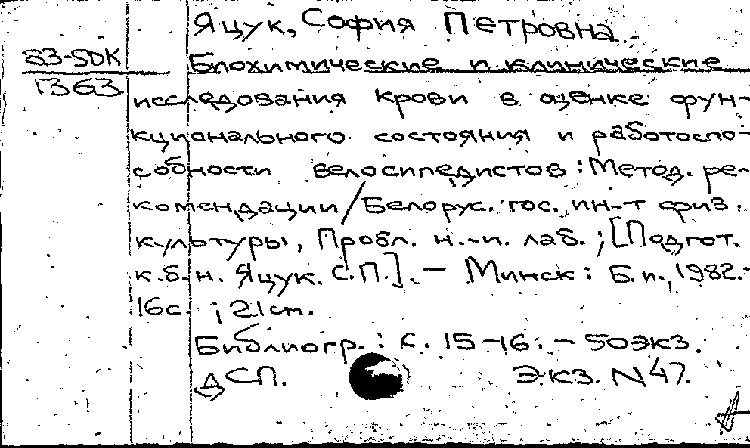 Яцук, София Петровна
83-5DK
Г363
Биохимические и клинические
исследования крови в оценке фун-
кционального состояния и работоспо-
собности велосипедистов: Метод. ре-
комендации/Белорус. гос. ин-т физ.
культуры, Пробл. н.-и. лаб.; [Подгот.
к.б.н. Яцук. С.П.]. — Минск: Б.и., 1982.-
16с. ; 21см.
Библиогр.: с. 15-16. - 50экз.
ДСП. Экз. N47.